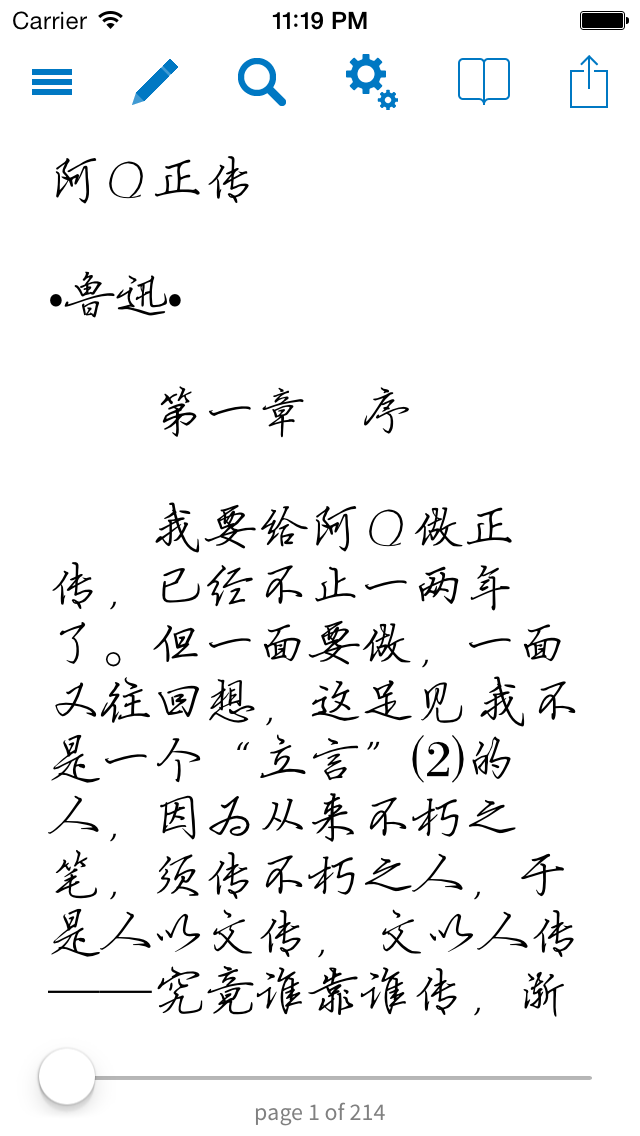 Carrier 11:19 PM
阿Q正传
•鲁迅•
第一章 序
我要给阿Q做正
传，已经不止一两年
了。但一面要做，一面
又往回想，这足见我不
是一个“立言”(2)的
人，因为从来不朽之
笔，须传不朽之人，于
是人以文传， 文以人传
——究竟谁靠谁传，渐
page 1 of 214